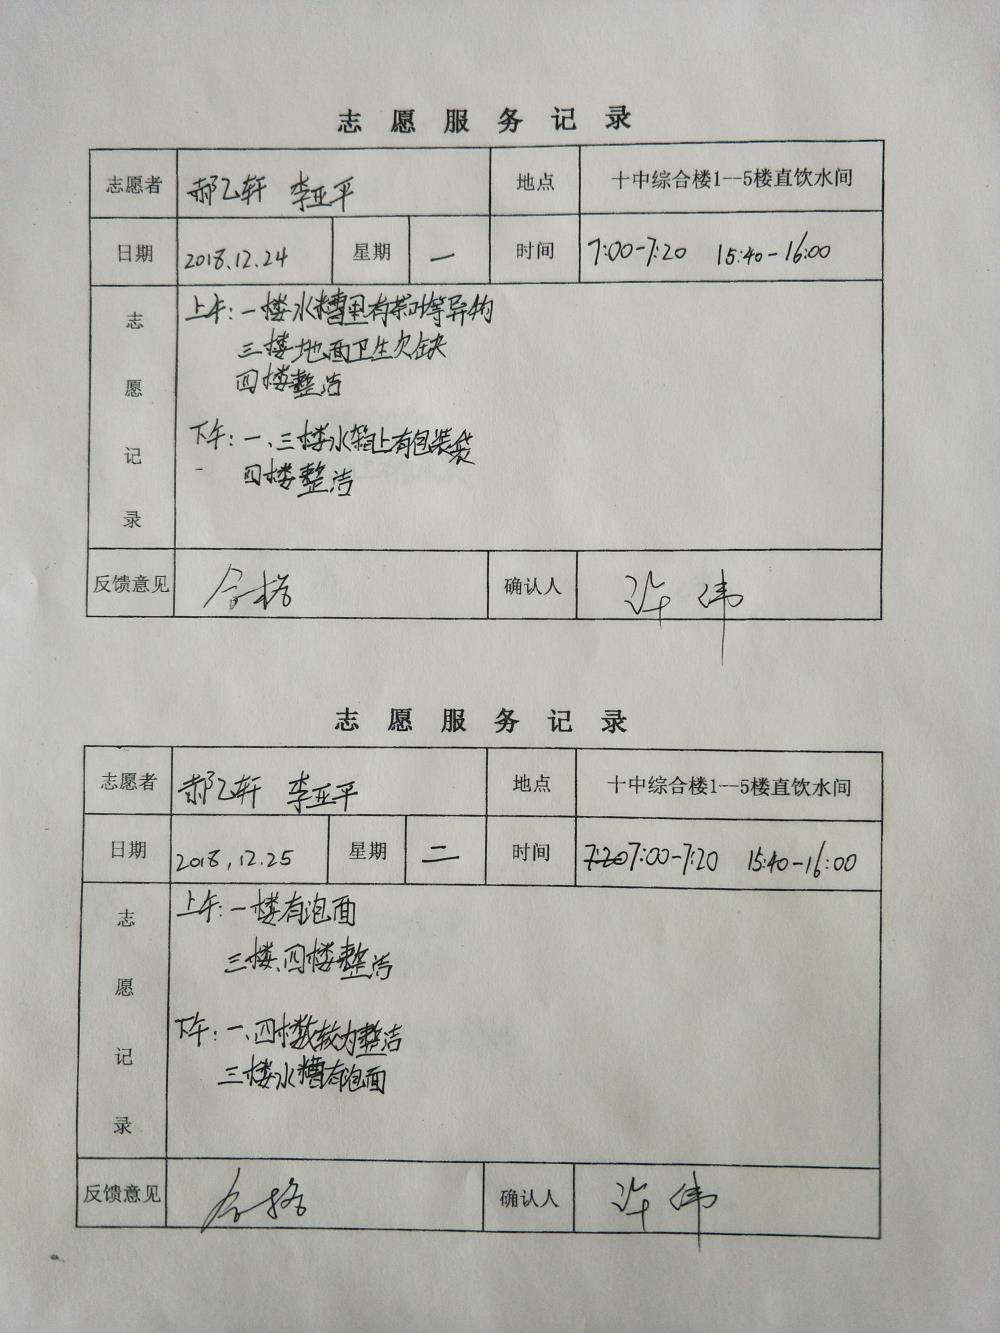 志愿服务记录
志愿者 郝乙轩 李亚平 地点 十中综合楼1--5楼直饮水间
日期 2018.12.24 星期 一 时间 7:00-7:20 15:40-16:00
志愿记录
上午:一楼水糟里有茶叶等异物
三楼地面卫生欠缺
四楼整洁
下午:一、三楼水箱上有包装袋
四楼整洁
反馈意见 合格 确认人 许伟
志愿服务记录
志愿者 郝乙轩 李亚平 地点 十中综合楼1--5楼直饮水间
日期 2018,12.25 星期 二 时间 7:20 7:00-7:20 15:40-16:00
志愿记录
上午:一楼有泡面
三楼、四楼整洁
下午:一、四楼较为整洁
三楼水糟有泡面
反馈意见 合格 确认人 许伟